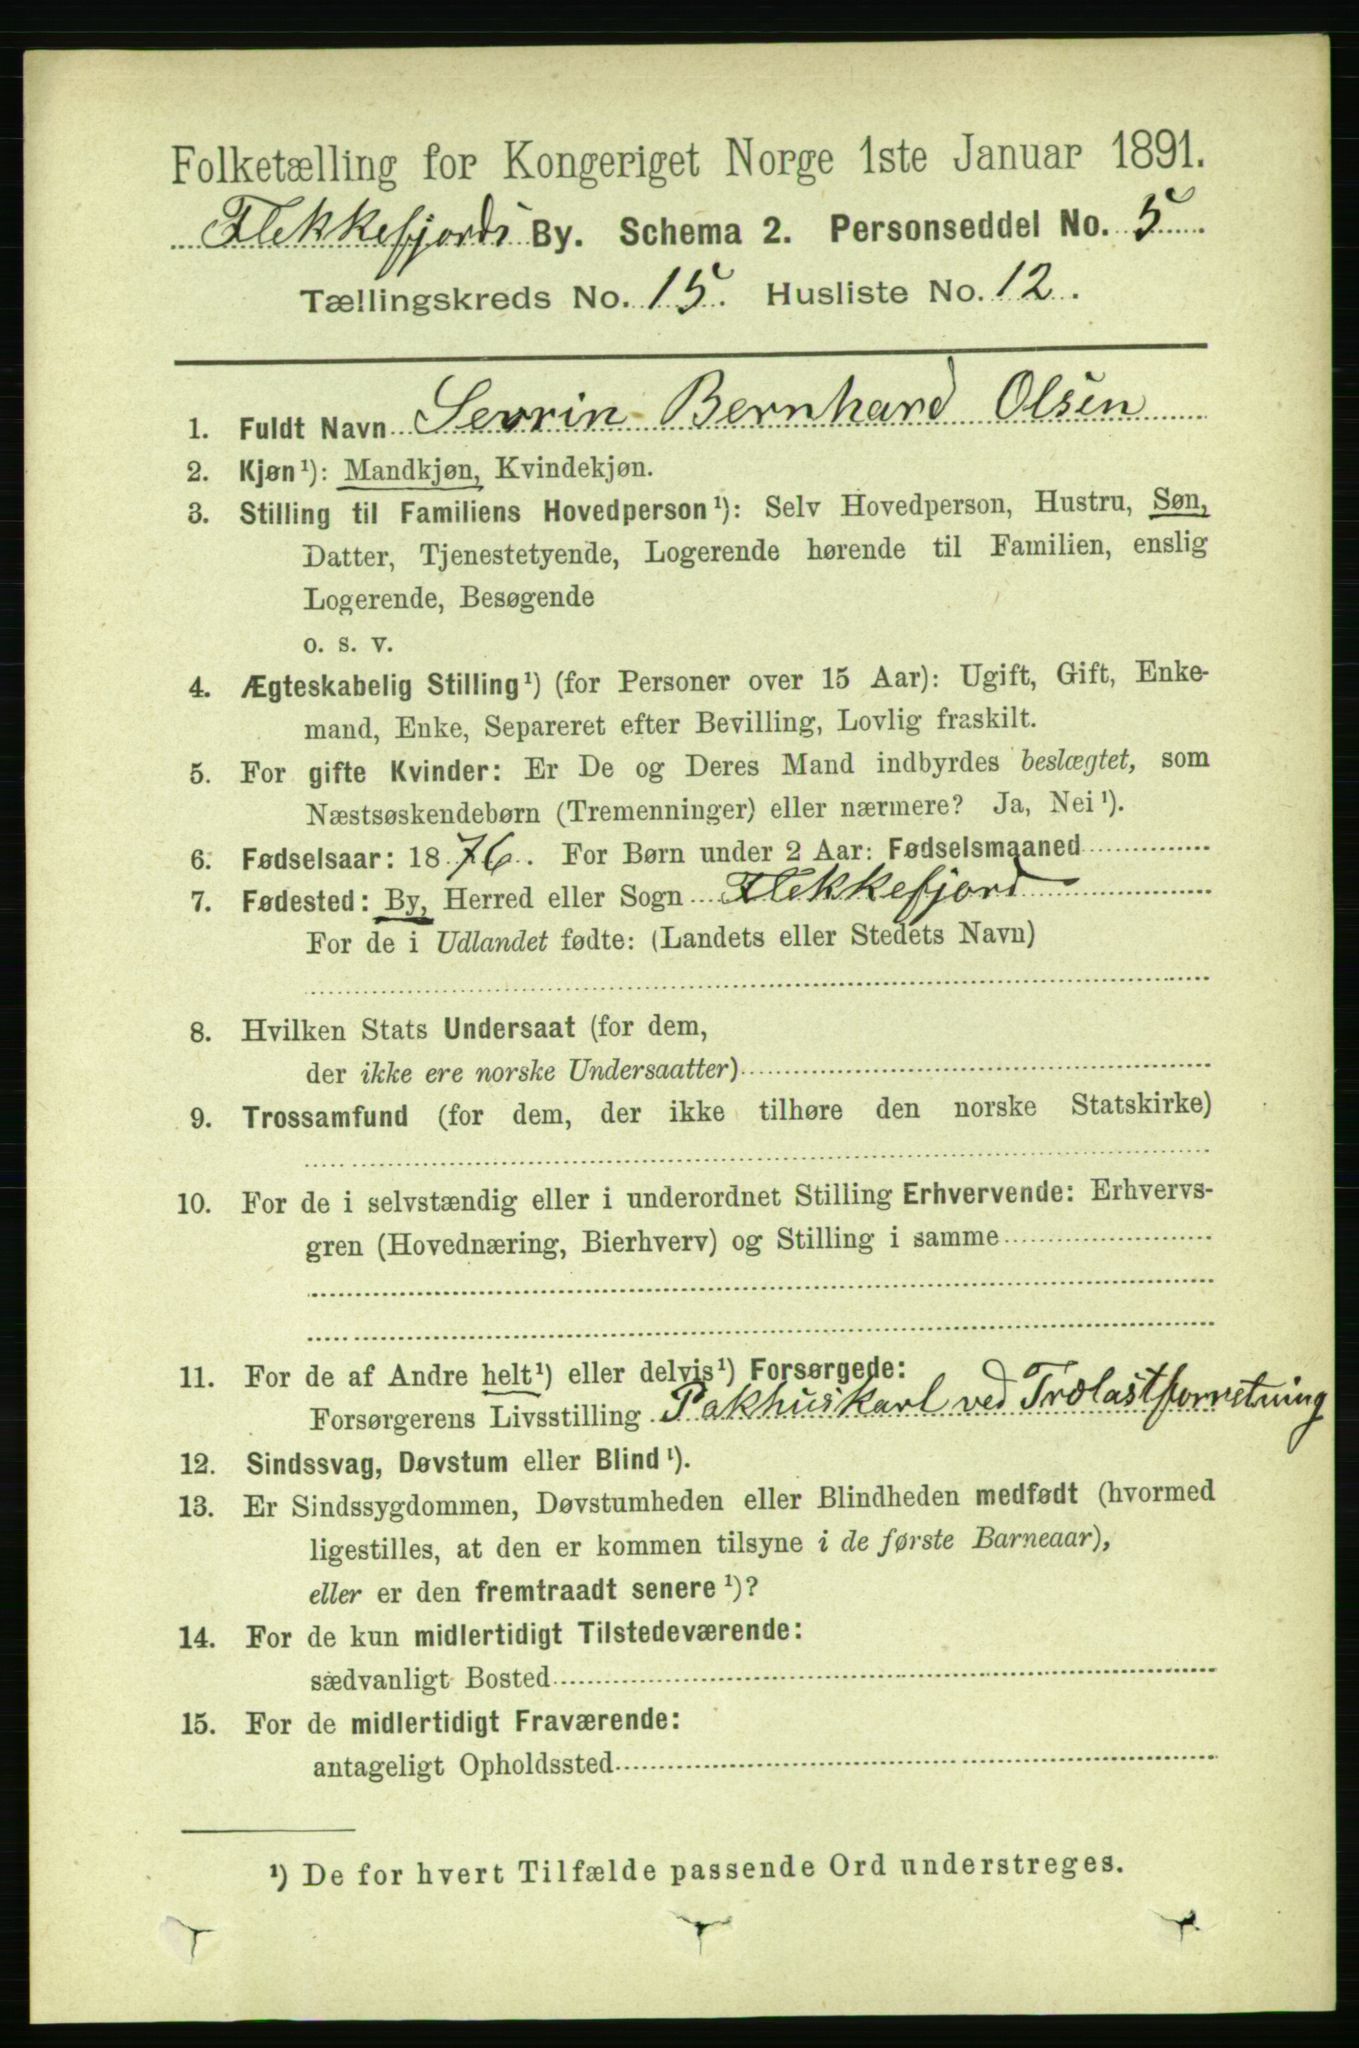 Folketælling for Kongeriget Norge 1ste Januar 1891.
Flekkefjords By. Schema 2. Personseddel No. 5
Tællingskreds No. 15. Husliste No. 12.
1. Fuldt Navn Sevrin Bernhard Olsen
2. Kjøn¹): Mandkjøn, Kvindekjøn.
3. Stilling til Familiens Hovedperson¹): Selv Hovedperson, Hustru, Søn,
Datter, Tjenestetyende, Logerende hørende til Familien, enslig
Logerende, Besøgende
o. s. v.
4. Ægteskabelig Stilling¹) (for Personer over 15 Aar): Ugift, Gift, Enke-
mand, Enke, Separeret efter Bevilling, Lovlig fraskilt.
5. For gifte Kvinder: Er De og Deres Mand indbyrdes beslægtet, som
Næstsøskendebørn (Tremenninger) eller nærmere? Ja, Nei¹).
6. Fødselsaar: 1876. For Børn under 2 Aar: Fødselsmaaned
7. Fødested: By, Herred eller Sogn Flekkefjord
For de i Udlandet fødte: (Landets eller Stedets Navn)
8. Hvilken Stats Undersaat (for dem,
der ikke ere norske Undersaatter)
9. Trossamfund (for dem, der ikke tilhøre den norske Statskirke)
10. For de i selvstændig eller i underordnet Stilling Erhvervende: Erhvervs-
gren (Hovednæring, Bierhverv) og Stilling i samme
11. For de af Andre helt¹) eller delvis¹) Forsørgede:
Forsørgerens Livsstilling Pakhuskarl ved Trælastforretning
12. Sindssvag, Døvstum eller Blind¹).
13. Er Sindssygdommen, Døvstumheden eller Blindheden medfødt (hvormed
ligestilles, at den er kommen tilsyne i de første Barneaar),
eller er den fremtraadt senere¹)?
14. For de kun midlertidigt Tilstedeværende:
sædvanligt Bosted
15. For de midlertidigt Fraværende:
antageligt Opholdssted
¹) De for hvert Tilfælde passende Ord understreges.